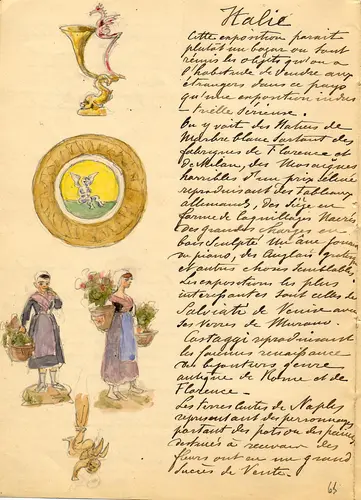 Italie
Cette exposition parait
plutôt un bazar ou sont
réunis les objets qu'on a
l'habitude de vendre aux
étrangers dans ce pays
qu'une exposition indus-
trielle sérieuse.
On y voit des statues de
Marbre blanc sortant des
fabriques de Florence et
de Milan, des Mosaïques
horribles d'un prix élevé
reproduisant des tableaux
allemands, des sièges en
forme de coquillages nacrés
des grandes charges en
bois sculpté Un âne jouant
du piano, des Anglais grotesq
et autres choses semblables
Les expositions les plus
intéressantes sont celles de
Salviati de Venise avec
ses verres de Murano
Castaggi reproduisant
les faiences renaissance
des bijoutiers genre
antique de Rome et de
Florence —
Les terres cuites de Naples
représentant des personnages
portant des pots ou des paniers
destinés à recevoir des
fleurs ont eu un grand
succès de Vente.